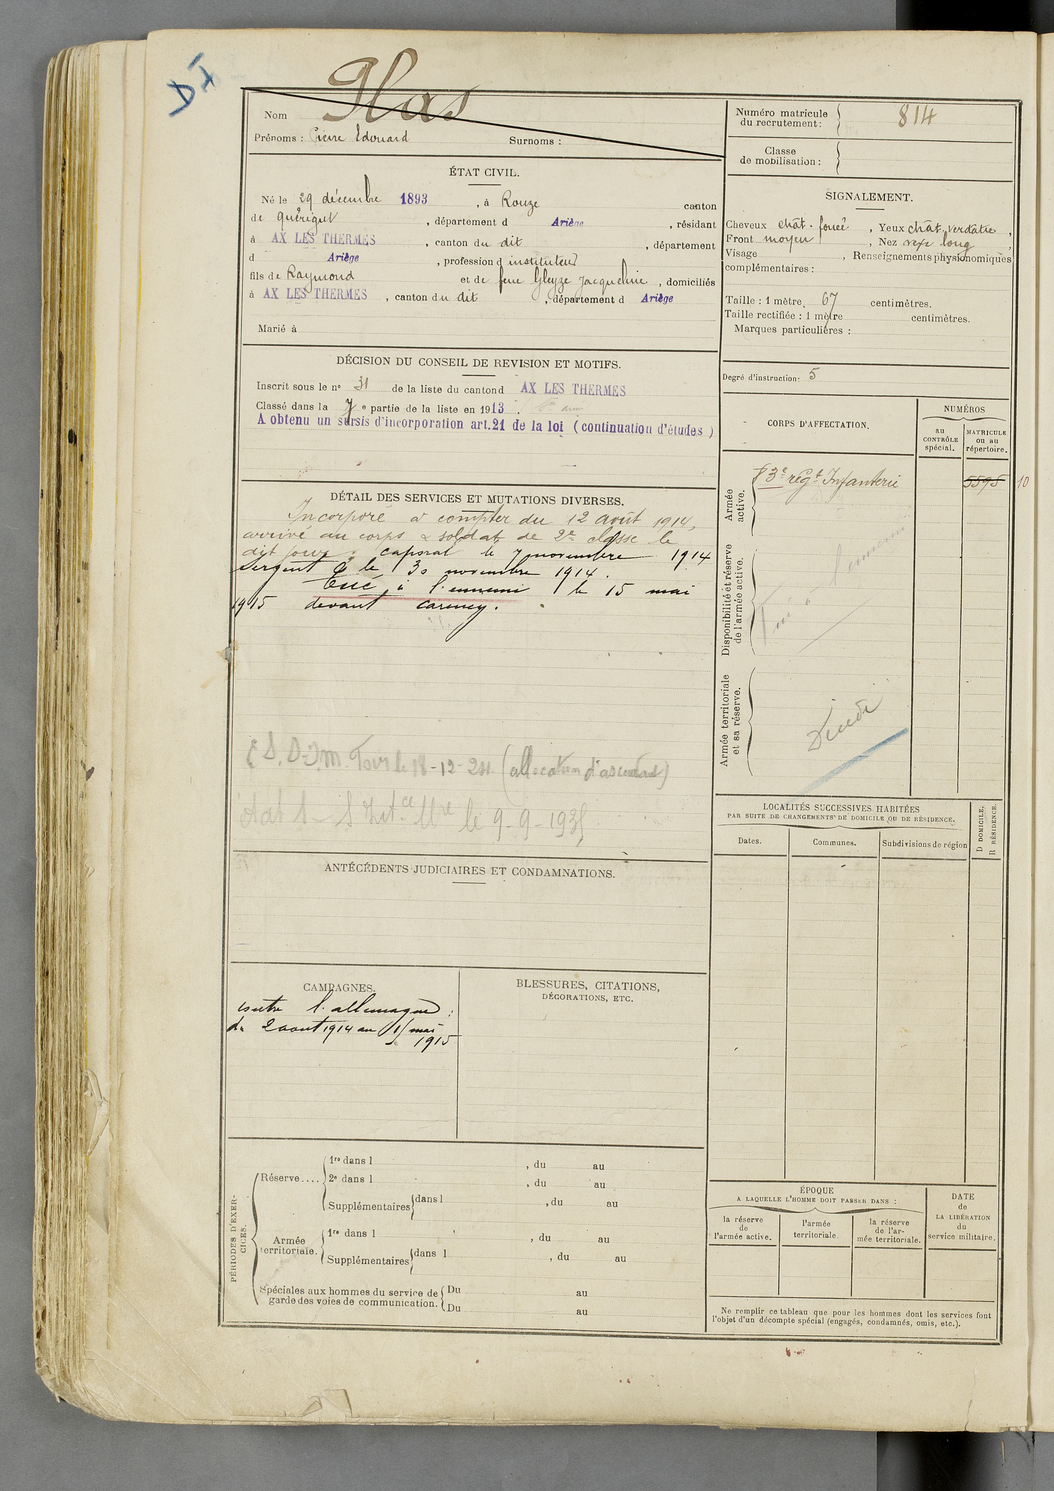 DI
Nom Plas
Prénoms : Pierre Edouard Surnoms :
Numéro matricule du recrutement : 814
Classe de mobilisation :
ÉTAT CIVIL.
Né le 29 décembre 1893, à Rouze canton
de Quérigut, département d Ariège, résidant
à AX LES THERMES, canton du dit, département
d Ariège, profession d instituteur
fils de Raymond et de feue Gleyze Jacqueline, domiciliés
à AX LES THERMES, canton du dit, département d Ariège
Marié à
SIGNALEMENT.
Cheveux chât. foncé, Yeux chât. verdâtre,
Front moyen, Nez rexe long,
Visage , Renseignements physionomiques
complémentaires :
Taille : 1 mètre, 67 centimètres.
Taille rectifiée : 1 mètre centimètres.
Marques particulières :
Degré d'instruction : 5
DÉCISION DU CONSEIL DE REVISION ET MOTIFS.
Inscrit sous le nº 31 de la liste du canton d AX LES THERMES
Classé dans la 7 e partie de la liste en 1913.
A obtenu un sursis d'incorporation art.21 de la loi (continuation d'études)
CORPS D'AFFECTATION.
NUMÉROS
au CONTRÔLE spécial.
MATRICULE ou au répertoire.
Armée active.
83e régt Infanterie 5595 10
Disponibilité et réserve de l'armée active.
Tué à l'ennemi
Armée territoriale et sa réserve.
DÉTAIL DES SERVICES ET MUTATIONS DIVERSES.
Incorporé à compter du 12 août 1914,
arrivé au corps & soldat de 2e classe le
dit jour. caporal le 7 novembre 1914
Sergent le 30 novembre 1914.
Tué à l'ennemi le 15 mai
1915 devant carency.
le 18-12-21 (allocation d'ascendant)
le 9-9-1935
LOCALITÉS SUCCESSIVES HABITÉES
PAR SUITE DE CHANGEMENTS DE DOMICILE OU DE RÉSIDENCE.
Dates. Communes. Subdivisions de région
D DOMICILE, R RÉSIDENCE.
ANTÉCÉDENTS JUDICIAIRES ET CONDAMNATIONS.
CAMPAGNES.
contre l'allemagne :
du 2 aout 1914 au 15 mai
1915
BLESSURES, CITATIONS,
DÉCORATIONS, ETC.
PÉRIODES D'EXERCICES.
Réserve....
1re dans l , du au
2e dans l , du au
Supplémentaires dans l , du au
Armée territoriale.
1re dans l , du au
Supplémentaires dans l , du au
Spéciales aux hommes du service de garde des voies de communication.
Du au
Du au
ÉPOQUE
A LAQUELLE L'HOMME DOIT PASSER DANS :
la réserve de l'armée active.
l'armée territoriale.
la réserve de l'armée territoriale.
DATE de LA LIBÉRATION du service militaire.
Ne remplir ce tableau que pour les hommes dont les services font
l'objet d'un décompte spécial (engagés, condamnés, omis, etc.).